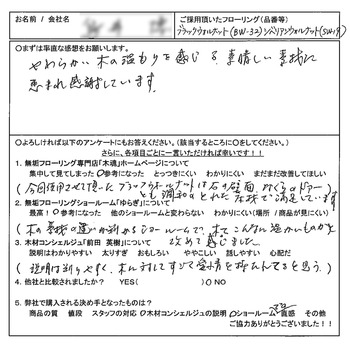 お名前 / 会社名
ご採用頂いたフローリング(品番等)
ブラックウォルナット(BW-32)
○まずは率直な感想をお願いします。
やわらかい木の温もりを感じる素晴しい素材に
恵まれ感謝しています。
○よろしければ以下のアンケートにもお答えください。(該当するところに○をしてください。)
さらに、各項目ごとに一言いただければ幸いです!!
1. 無垢フローリング専門店「木魂」ホームページについて
集中して見てしまった ○参考になった とっつきにくく わかりにくい まだまだ改善してほしい
(今回使用させて頂いたブラックウォルナットは石の壁面、
とても調和のとれた 満足しています)
2. 無垢フローリングショールーム「ゆらぎ」について
最高! ○参考になった 他のショールームと変わらない わかりにくい(場所 / 商品が見にくい)
(木の素材の違いが わかるショールームで、木てこんなに温かいものかと
改めて感じました。
3. 木材コンシェルジュ「前田 英樹」について
説明はわかりやすい 太りすぎ おもしろい ややこしい 話しやすい 心配だ
(説明は判りやすく、木に対してすごく愛情を持たれてると思う。)
4. 他社と比較されましたか? YES( )○NO
5. 弊社で購入される決め手となったものは?
商品の質 値段 スタッフの対応 ○木材コンシェルジュの説明 ○ショールーム 直感 その他
ご協力ありがとうございました!!